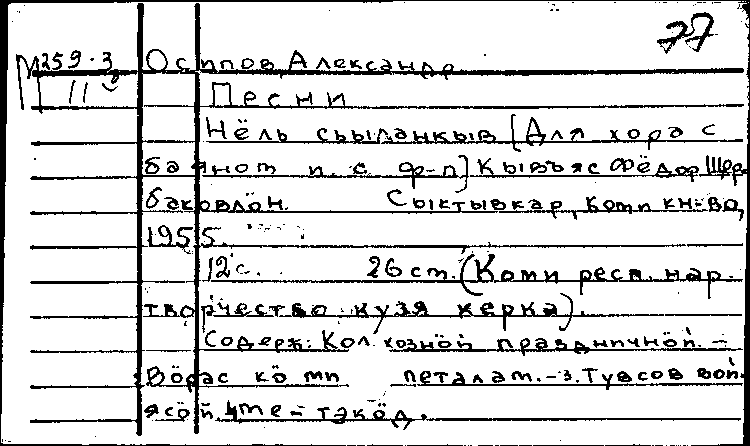 77
М 259.3 Осипов, Александр
11 Песни
Нёль сьыланкыв [Для хора с
баяном и с ф-п] Кывъяс Фёдор Щер-
баковлӧн. Сыктывкар, Коми кн-во,
1955.
12 с. 26 cm. (Коми респ. нар.
творчество кузя керка).
Содерж: Колхозной праздничной. –
Вӧрас кӧ ми петалам. – 3. Тувсов вой-